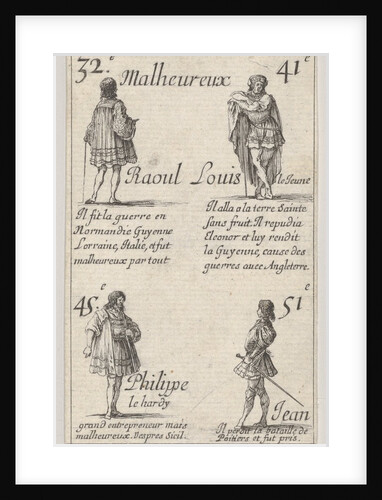 32.e Malheureux 41e
Raoul Louis le Jeune
Il fit la guerre en
Normandie Guyenne
Lorraine, Italie, et fut
malheureux par tout
Il alla a la terre Sainte
sans fruit. Il repudia
Eleonor et luy rendit
la Guyenne, cause des
guerres avec Angleterre.
45e
Philippe
le hardy
grand entrepreneur mais
malheureux. Vespres Sicil.
51e
Jean
Il perdit la bataille de
Poitiers et fut pris.